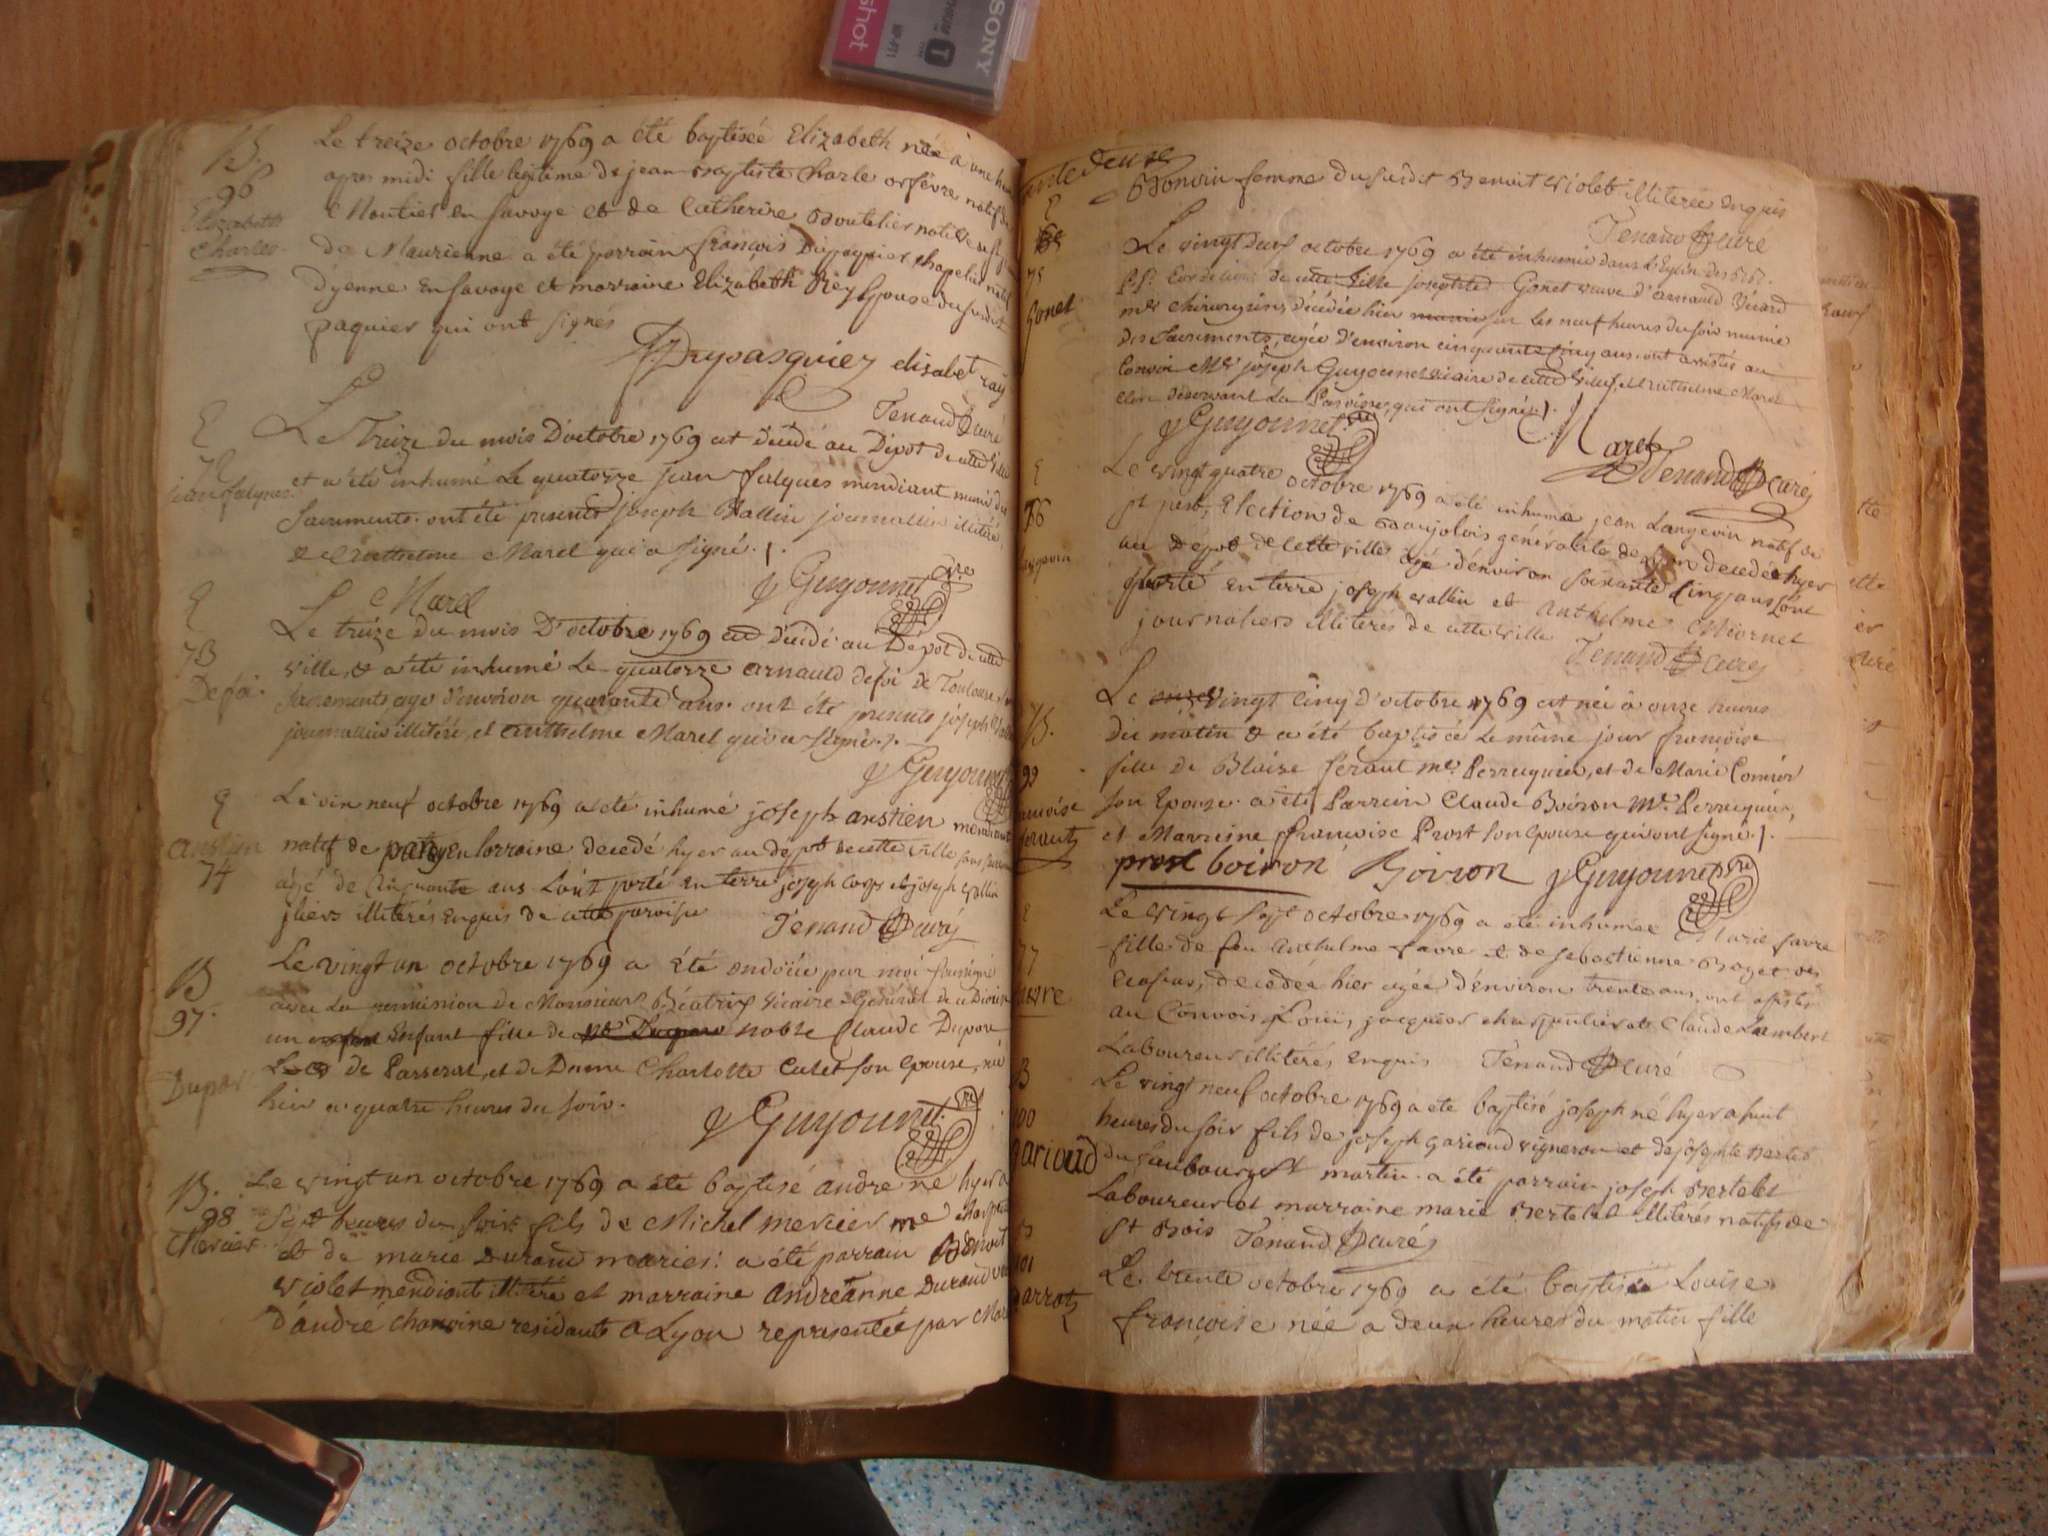 SONY
B.
96
Elizabeth
Charles
Le treize octobre 1769 a été baptisée Elizabeth née à une heure
apres midi fille légitime de jean Baptiste Charle orfévre natif de
Moutier en Savoye et de Catherine Boutelier native de
de Maurienne a été parrain françois Dupaquier chapelier natif
d'yenne en Savoye et marraine Elizabeth Rey Epouse du susdit
paquier qui ont signés
Drypasquiez elisabet ray
Tenand curé
Le Treize du mois D'octobre 1769 est décédé au Dépot de cette ville
et a été inhumé Le quatorze jean falques mendiant muni des
Sacrements. ont été presents joseph Vallin journallier illitéré,
et Anthelme Marel qui a signé.
Marel
Guyonnet vre
73
Defoi.
Le treize du mois D'octobre 1769 est décédé au Dépot de cette
ville, et a été inhumé Le quatorze arnauld defoi de Toulouse
sacrements agé d'environ quarante ans. ont été presents joseph
journallier illitéré, et anthelme Marel qui a signé.
Guyonnet
74
Le vin neuf octobre 1769 a été inhumé joseph anstien mendiant
natif de en lorraine decedé hyer au depot de cette ville
agé de Cinquante ans L'ont porté en terre joseph Corps et joseph vallin
jliers illiterés enquis de cette paroisse
Tenand curé
B
97.
Dupor
Le vingt un octobre 1769 a été ondoïée par moi soussigné
avec La permission de Monsieur Béatrix Vicaire Général de ce Diocese
un Enfant fille de noble Claude Dupor
de Passerat, et de Dame Charlotte Cutet son epouse, née
hier a quatre heures du soir.
Guyonnet vre
B.
98
Mercier
Le vingt un octobre 1769 a été baptisé andré né hyer a
sept heures du soir fils de Michel mercier me
et de marie Durand mariés: a été parrain Benoit
violet mendiant illitéré et marraine andréanne Durand
d'andré chanoine residante a Lyon représentée par
Bonvin femme du susdit Benoit violet illiterée enquis
Tenand curé
75
Gonet
Le vingt deux octobre 1769 a été inhumée dans L'Eglise des
Cordeliers de cette Ville josephte Gonet veuve d'arnauld Bicard
me chirurgien, décédée hier sur les neuf heures du soir munie
des Sacrements, agée d'environ cinquante cinq ans. ont assistés au
Convoi Mre joseph Guyonnet vicaire de cette ville, et Anthelme Marel
clerc désservant La Paroisse, qui ont signés.
Guyonnet vre
Marel
Tenand curé
76
Langevin
Le vingt quatre octobre 1769 a été inhumé jean Langevin natif de
st just, Election de Beaujolois généralité de decedé hyer
au depot de cette ville agé d'environ soixante cinq ans L'ont
porté en terre joseph vallin et anthelme Miornet
journaliers illiterés de cette ville
Tenand curé
B.
99
Le vingt cinq d'octobre 1769 est née à onze heures
du matin et a été baptisée le même jour françoise
fille de Blaise féraut me Perruquier, et de Marie Cornier
son Epouse. a été Parrein Claude Boiron Me Perruquier,
et Marreine françoise Prost son Epouse qui ont signé.
prost boiron Boiron Guyonnet vre
77
favre
Le vingt sept octobre 1769 a été inhumée Marie favre
fille de feu anthelme favre et de sebastienne Boget de
decedée hier agée d'environ trente ans. ont assistés
au Convois Louis jacquier charpentier et Claude Lambert
Laboureur illitérés enquis Tenand curé
B
100
garioud
Le vingt neuf octobre 1769 a été baptisé joseph né hyer a huit
heures du soir fils de joseph garioud vigneron et de josephte Bertet
du faubourg st martin. a été parrain joseph Bertelet
Laboureur et marraine marie Bertelet illiterés natifs de
st Bois Tenand curé
B
101
Le trente octobre 1769 a été baptisée Louise
françoise née a deux heures du matin fille